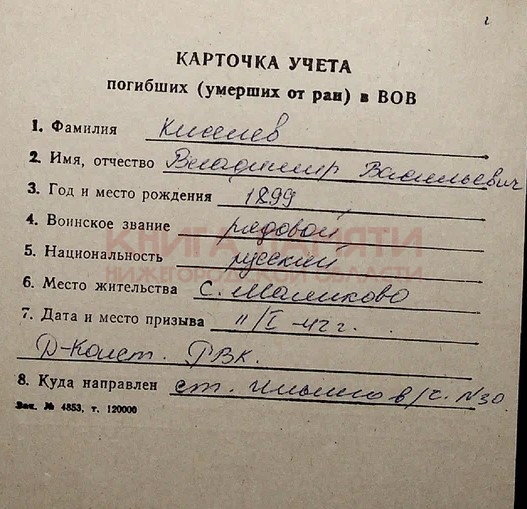 КАРТОЧКА УЧЕТА
погибших (умерших от ран) в ВОВ
1. Фамилия Киселев
2. Имя, отчество Владимир Васильевич
3. Год и место рождения 1899
4. Воинское звание рядовой
КНИГА ПАМЯТИ
5. Национальность русский
НИЖЕГОРОДСКОЙ ОБЛАСТИ
6. Место жительства с. Маликово
7. Дата и место призыва 11/I-42 г.
Д-Конст. РВК.
8. Куда направлен ст. Ильино в/ч. N30
Зак. № 4853, т. 120000